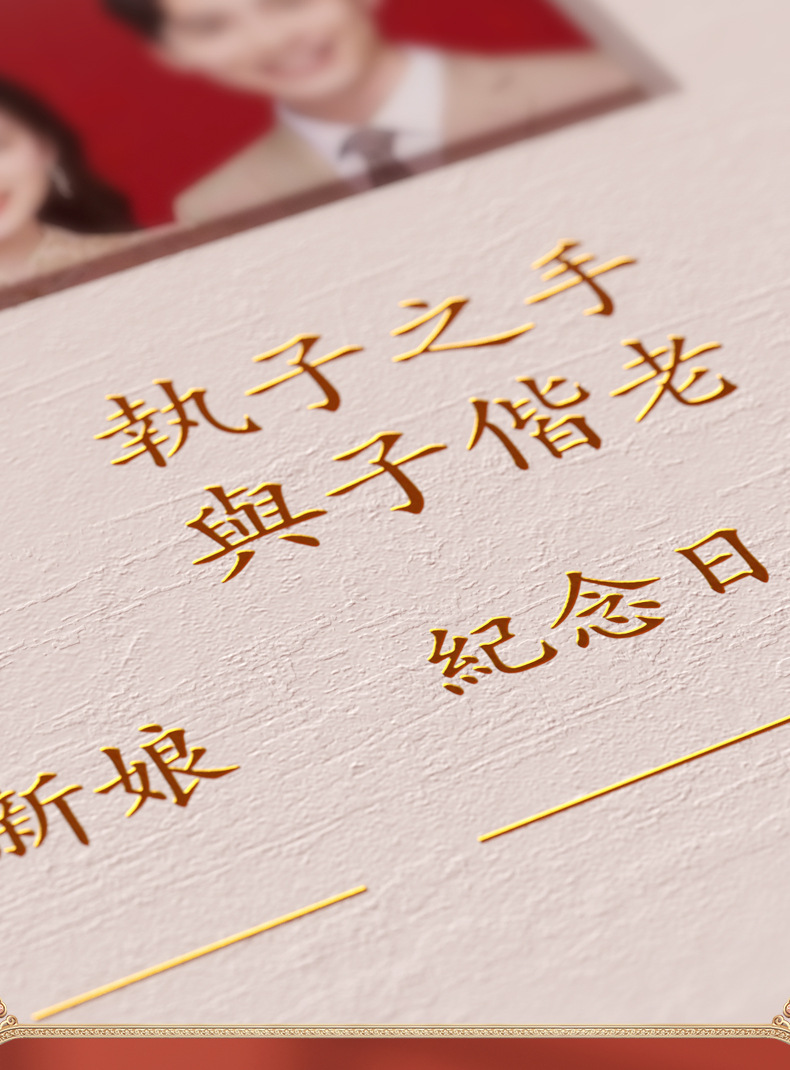 執子之手
與子偕老
紀念日
新娘